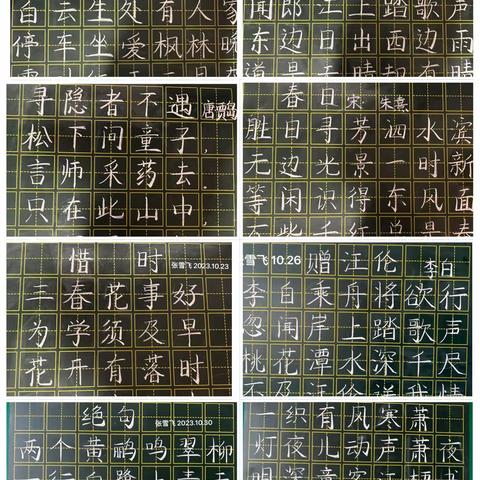 白云生处有人家
停车坐爱枫林晚
闻郎江上踏歌声
东边日出西边雨
道是无晴却有晴
寻隐者不遇 唐贾岛
松下问童子，
言师采药去.
只在此山中，
春日 宋 朱熹
胜日寻芳泗水滨
无边光景一时新
等闲识得东风面
惜时
张雪飞 2023.10.23
三春花事好
为学须及早
花开有落时
雪飞 10.26 赠汪伦 李白
李白乘舟将欲行
忽闻岸上踏歌声
桃花潭水深千尺
不及汪伦送我情
绝句
张雪飞 2023.10.30
两个黄鹂鸣翠柳
一行白鹭上青天
一织有风寒萧
灯夜儿动声萧夜
明深童客江梧书